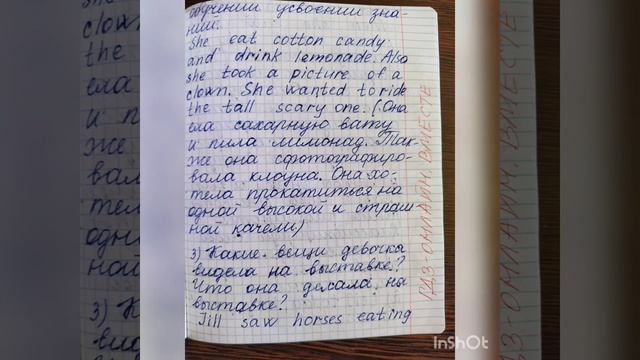 обучении усвоении зна-
ний.
She eat cotton candy
and drink lemonade. Also
she took a picture of a
clown. She wanted to ride
the tall scary one. (Она
ела сахарную вату
и пила лимонад. Так-
же она сфотографиро-
вала клоуна. Она хо-
тела прокатиться на
одной высокой и страш
ной качели)
3) Какие вещи девочка
видела на выставке?
Что она делала на
выставке?
Jill saw horses eating
ГДЗ-ОНЛАЙН ВМЕСТЕ
InShOt